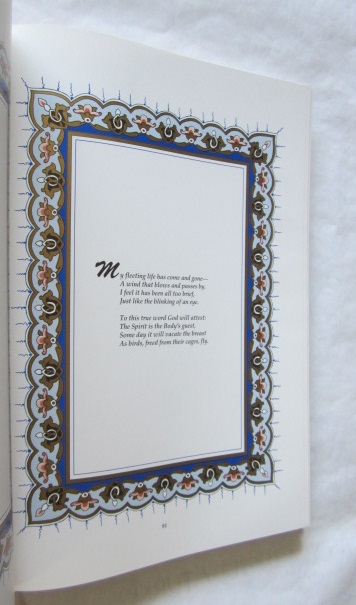 My fleeting life has come and gone—
A wind that blows and passes by.
I feel it has been all too brief,
Just like the blinking of an eye.
To this true word God will attest:
The Spirit is the Body's guest,
Some day it will vacate the breast
As birds, freed from their cages, fly.